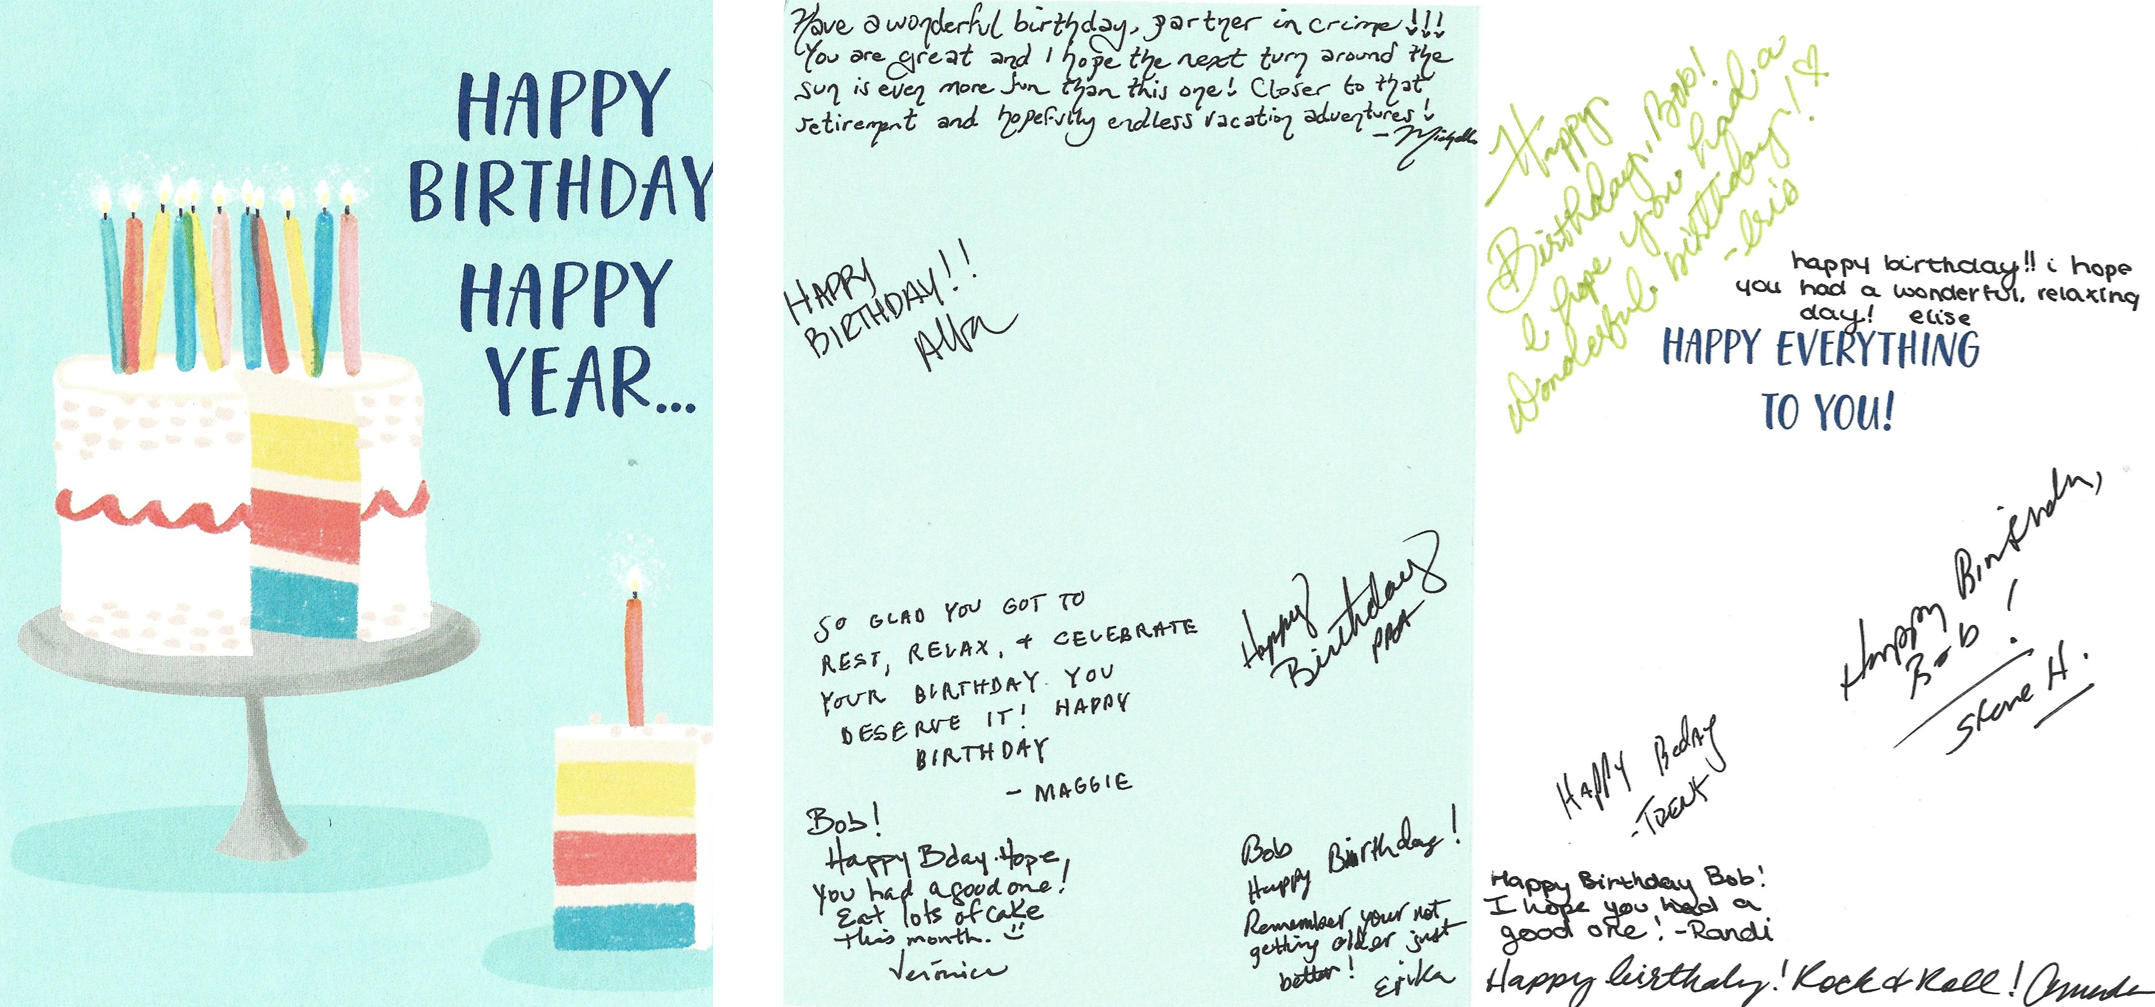 HAPPY
BIRTHDAY
HAPPY
YEAR...
Have a wonderful birthday, partner in crime!!!
You are great and I hope the next turn around the
sun is even more fun than this one! Closer to that
retirement and hopefully endless vacation adventures!
- Michelle
HAPPY
BIRTHDAY!!
SO GLAD YOU GOT TO
REST, RELAX, + CELEBRATE
YOUR BIRTHDAY. YOU
DESERVE IT! HAPPY
BIRTHDAY
- MAGGIE
Happy
Birthday
Bob!
Happy Bday. Hope
you had a good one!
Eat lots of cake
this month. :)
Veronica
Bob
Happy Birthday!
Remember your not
getting older just
better!
Erika
Happy
Birthday, Bob!
I hope you had a
wonderful birthday! ♡
- Iris
happy birthday!! i hope
you had a wonderful, relaxing
day! elise
HAPPY EVERYTHING
TO YOU!
Happy Birthday,
Bob!
Shane H.
Happy Bday
-TRENT
Happy Birthday Bob!
I hope you had a
good one! -Randi
Happy birthday! Rock & Roll! Amanda